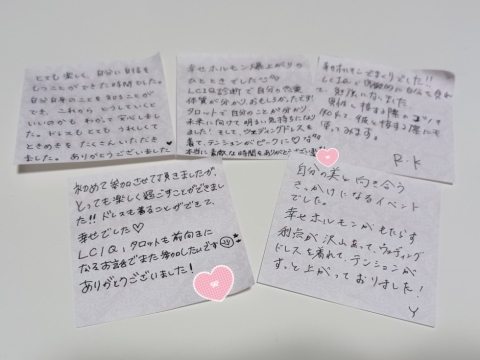 とても楽しく、自分に自信を
もつことができた時間でした。
自分自身のことを知ることが
でき、これから どうしていくと
いいのかも、わかって 安心しまし
た。ドレスもとても うれしくて
ときめきを たくさんいただき
ました。ありがとうございました
幸せホルモン爆上がりの
ひとときでした
LCIQ診断で自分の恋愛
体質が分かり、おもしろかったです!
タロットで自分のことが分かり、
未来に向けて明るい気持ちになり
ました! そして、ウェディングドレスも
着て、テンションがピークに♡
本当に素敵な時間をありがとうございました
幸せホルモンでまくりでした!!
LCIQで
て
男性と接する際の コツを
彼と接する際にも
使ってみます。
R.K
初めて参加させて頂きましたが、
とっても楽しく過ごすことができまし
た!! ドレスも着ることができて、
幸せでした♡
LCIQ、タロットも前向きに
なるお話でまた参加したいです
ありがとうございました!
自分の美と向き合う
きっかけになるイベント
でした。
幸せホルモンがもたらす
利点が沢山あって、ウェディング
ドレスを着れて、テンションが
ずっと上がっておりました!
Y